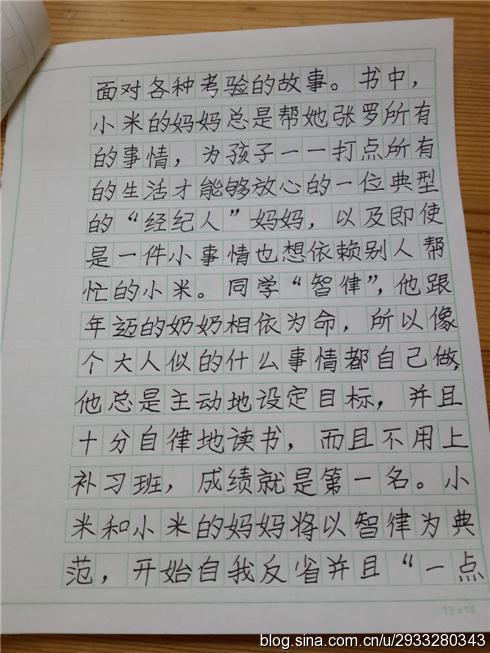 面对各种考验的故事。书中，
小米的妈妈总是帮她张罗所有
的事情，为孩子一一打点所有
的生活才能够放心的一位典型
的“经纪人”妈妈，以及即使
是一件小事情也想依赖别人帮
忙的小米。同学“智律”，他跟
年迈的奶奶相依为命，所以像
个大人似的什么事情都自己做，
他总是主动地设定目标，并且
十分自律地读书，而且不用上
补习班，成绩就是第一名。小
米和小米的妈妈将以智律为典
范，开始自我反省并且“一点
13×14
blog.sina.com.cn/u/2933280343